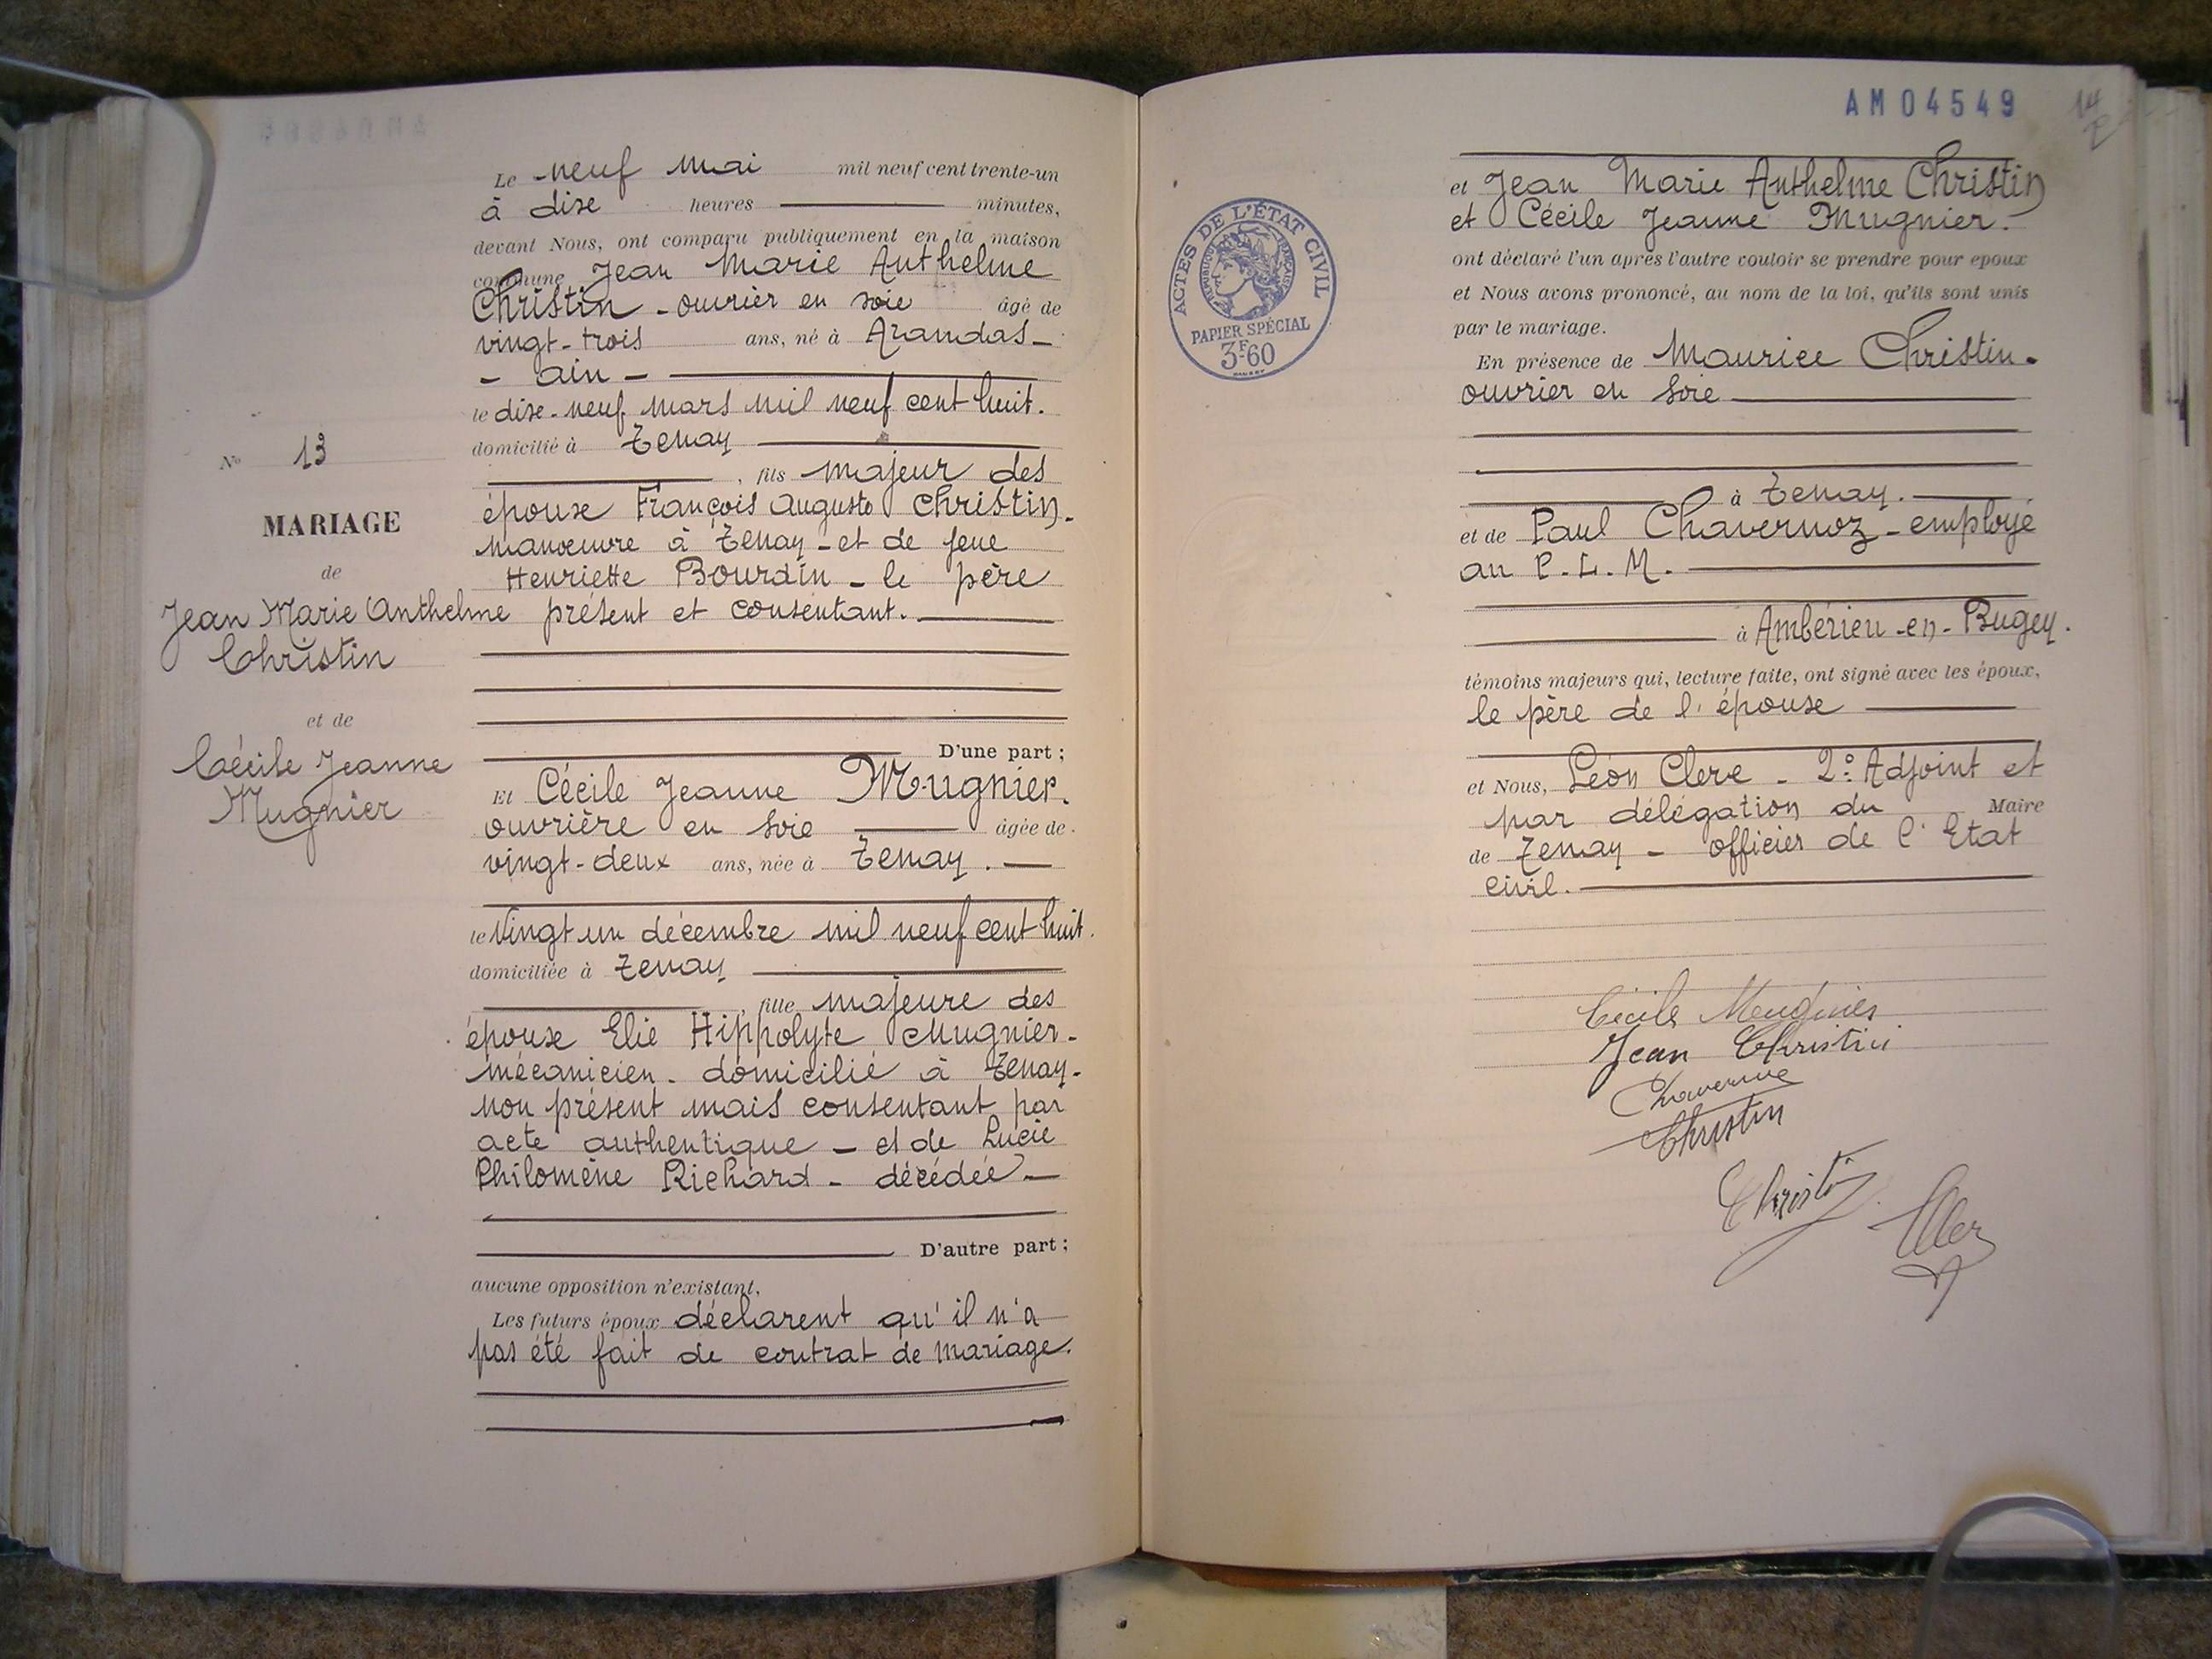 Le neuf mai mil neuf cent trente-un
à dixe heures minutes,
devant Nous, ont comparu publiquement en la maison
commune Jean Marie Anthelme
Christin - ouvrier en soie âgé de
vingt-trois ans, né à Arandas -
- ain -
le dixe-neuf mars mil neuf cent huit.
domicilié à Tenay
, fils majeur des
époux François Auguste Christin -
manœuvre à Tenay - et de feue
Henriette Bourdin - le père
présent et consentant.
D'une part ;
Et Cécile Jeanne Mugnier.
ouvrière en soie âgée de
vingt-deux ans, née à Tenay.
le Vingt un décembre mil neuf cent huit.
domiciliée à Tenay
, fille majeure des
époux Elie Hippolyte Mugnier -
mécanicien - domicilié à Tenay -
non présent mais consentant par
acte authentique - et de Lucie
Philomène Richard - décédée -
D'autre part ;
aucune opposition n'existant,
Les futurs époux déclarent qu'il n'a
pas été fait de contrat de mariage.
No 13
MARIAGE
de
Jean Marie Anthelme
Christin
et de
Cécile Jeanne
Mugnier
AM04549
14
ACTES DE L'ÉTAT CIVIL
RÉPUBLIQUE FRANÇAISE
PAPIER SPÉCIAL
3F60
et Jean Marie Anthelme Christin
et Cécile Jeanne Mugnier -
ont déclaré l'un après l'autre vouloir se prendre pour époux
et Nous avons prononcé, au nom de la loi, qu'ils sont unis
par le mariage.
En présence de Maurice Christin -
ouvrier en soie
à Tenay.
et de Paul Chavernoz - employé
au P. L. M.
à Ambérieu-en-Bugey.
témoins majeurs qui, lecture faite, ont signé avec les époux,
le père de l'épouse
et Nous, Léon Clerc - 2e Adjoint et
par délégation du Maire
de Tenay - officier de l'Etat
civil.
Cécile Mugnier
Jean Christin
Christin
Christin